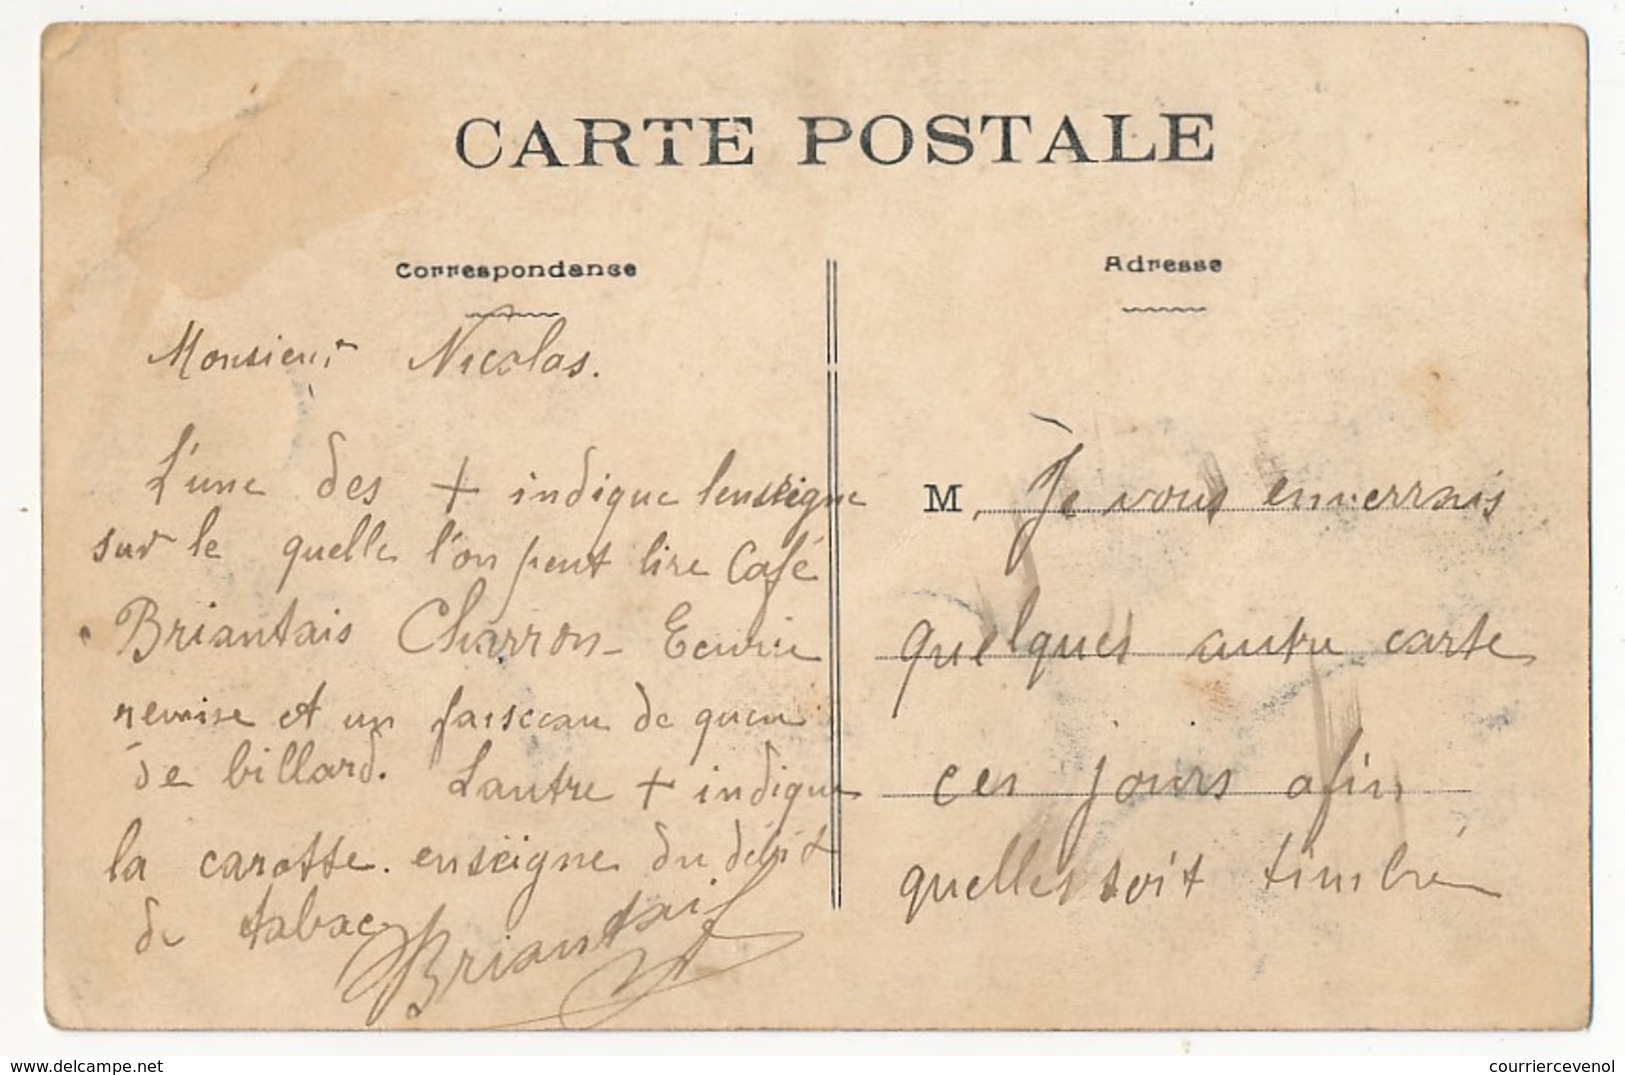 CARTE POSTALE
Correspondance
Monsieur Nicolas.
L'une des + indique lenseigne
sur le quelle l'on peut lire Café
Briantais Charron - Ecurie
remise et un faisceau de queu
de billard. Lautre + indique
la carotte. enseigne du dépôt
de tabac
Briantais
Adresse
M. Je vous enverrais
quelques autre carte
ces jours afin
quelles soit timbré
www.delcampe.net
courriercevenol